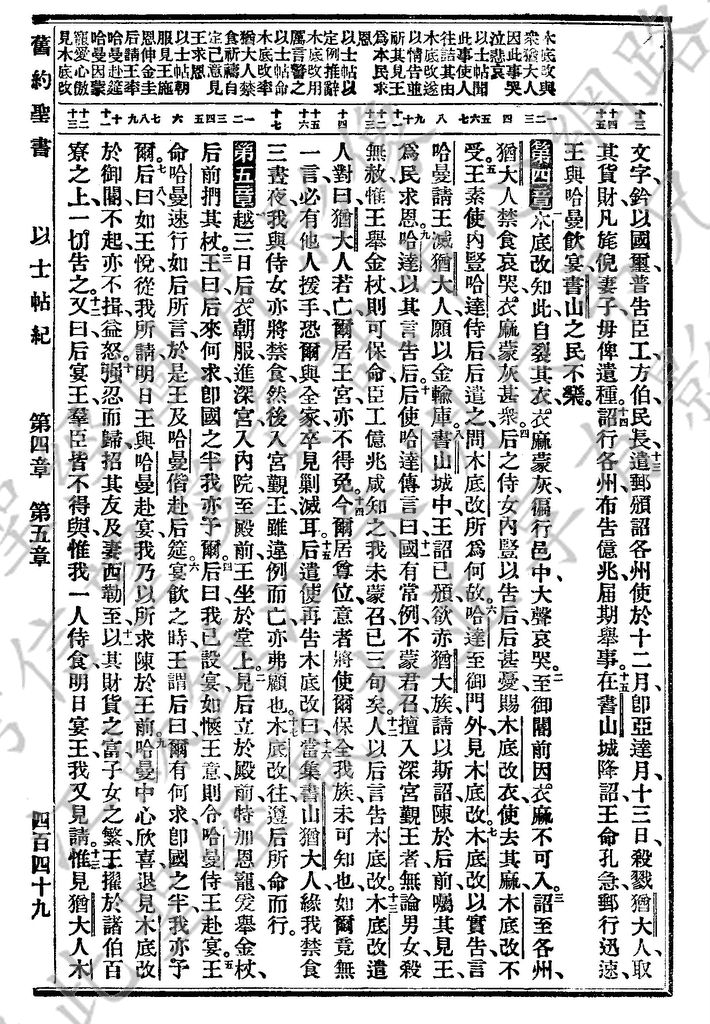 木底改與
衆猶大人
因此事哭
泣悲哀
以士帖聞
此事使人
往詰其由
木底改遂
以情告並
祈其見王
爲本民求
恩
以士帖以
定例推辭
木底改用
厲言警之
木底改率
猶大人禁
食祈禱自
定己意見
王求恩
以士帖朝
服見王施
恩伸金圭
后請王率
哈曼赴筵
哈曼因蒙
寵愛心傲
見木底改
文字、鈐以國璽、普告臣工方伯民長、遣郵頒詔各州、使於十二月、卽亞達月、十三日、殺戮猶大人、取
其貨財、凡旄倪妻子、毋俾遺種、詔行各州、布告億兆、屆期舉事、在書山城降詔、王命孔急、郵行迅速、
王與哈曼飮宴、書山之民不樂。
第四章 木底改知此、自裂其衣、衣麻蒙灰、徧行邑中、大聲哀哭、至御闕前、因衣麻不可入、詔至各州、
猶大人禁食哀哭、衣麻蒙灰甚衆、后之侍女內豎以告后、后甚憂、賜木底改衣、使去其麻、木底改不
受、王素使內豎哈達侍后、后遣之問木底改所爲何故、哈達至御門外、見木底改、木底改以實告、言
哈曼請王滅猶大人、願以金輸庫、書山城中、王詔已頒、欲亦猶大族、請以斯詔陳於后前、囑其見王、
爲民求恩、哈達以其言告后、后使哈達傳言曰、國有常例、不蒙君召、擅入深宮覲王者、無論男女、殺
無赦、惟王舉金杖、則可保命、臣工億兆咸知之、我未蒙召、已三旬矣、人以后言告木底改、木底改遣
人對曰、猶大人若亡、爾居王宮、亦不得免、今爾居尊位、意者將使爾保全我族、未可知也、如爾竟無
一言、必有他人援手、恐爾與全家、卒見剿滅耳、后遣使再告木底改曰、當集書山猶大人、緣我禁食
三晝夜、我與侍女亦將禁食、然後入宮覲王、雖違例而亡、亦弗顧也、木底改往、遵后所命而行。
第五章 越三日、后衣朝服、進深宮、入內院、至殿前、王坐於堂上、見后立於殿前、特加恩寵、爰舉金杖、
后前捫其杖、王曰、后來何求、卽國之半、我亦予爾、后曰、我已設宴、如愜王意、則令哈曼侍王赴宴、王
命哈曼速行、如后所言、於是王及哈曼偕赴后筵、宴飮之時、王謂后曰、爾有何求、卽國之半、我亦予
爾、后曰、如王悅從我所請、明日王與哈曼赴宴、我乃以所求陳於王前、哈曼中心欣喜、退見木底改
於御闕不起、亦不揖、益怒、强忍而歸、招其友及妻西勒至、以其財貨之富、子女之繁、王擢於諸伯百
寮之上、一切告之、又曰、后宴王、羣臣皆不得與、惟我一人侍食、明日宴王、我又見請、惟見猶大人木
舊約聖書　以士帖紀　第四章　第五章　四百四十九